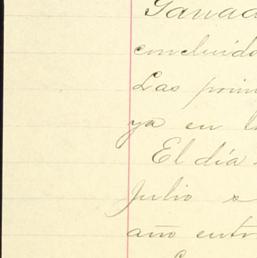 Ganad
concluido
Las prim
ya en l
El día
Julio s
año entr